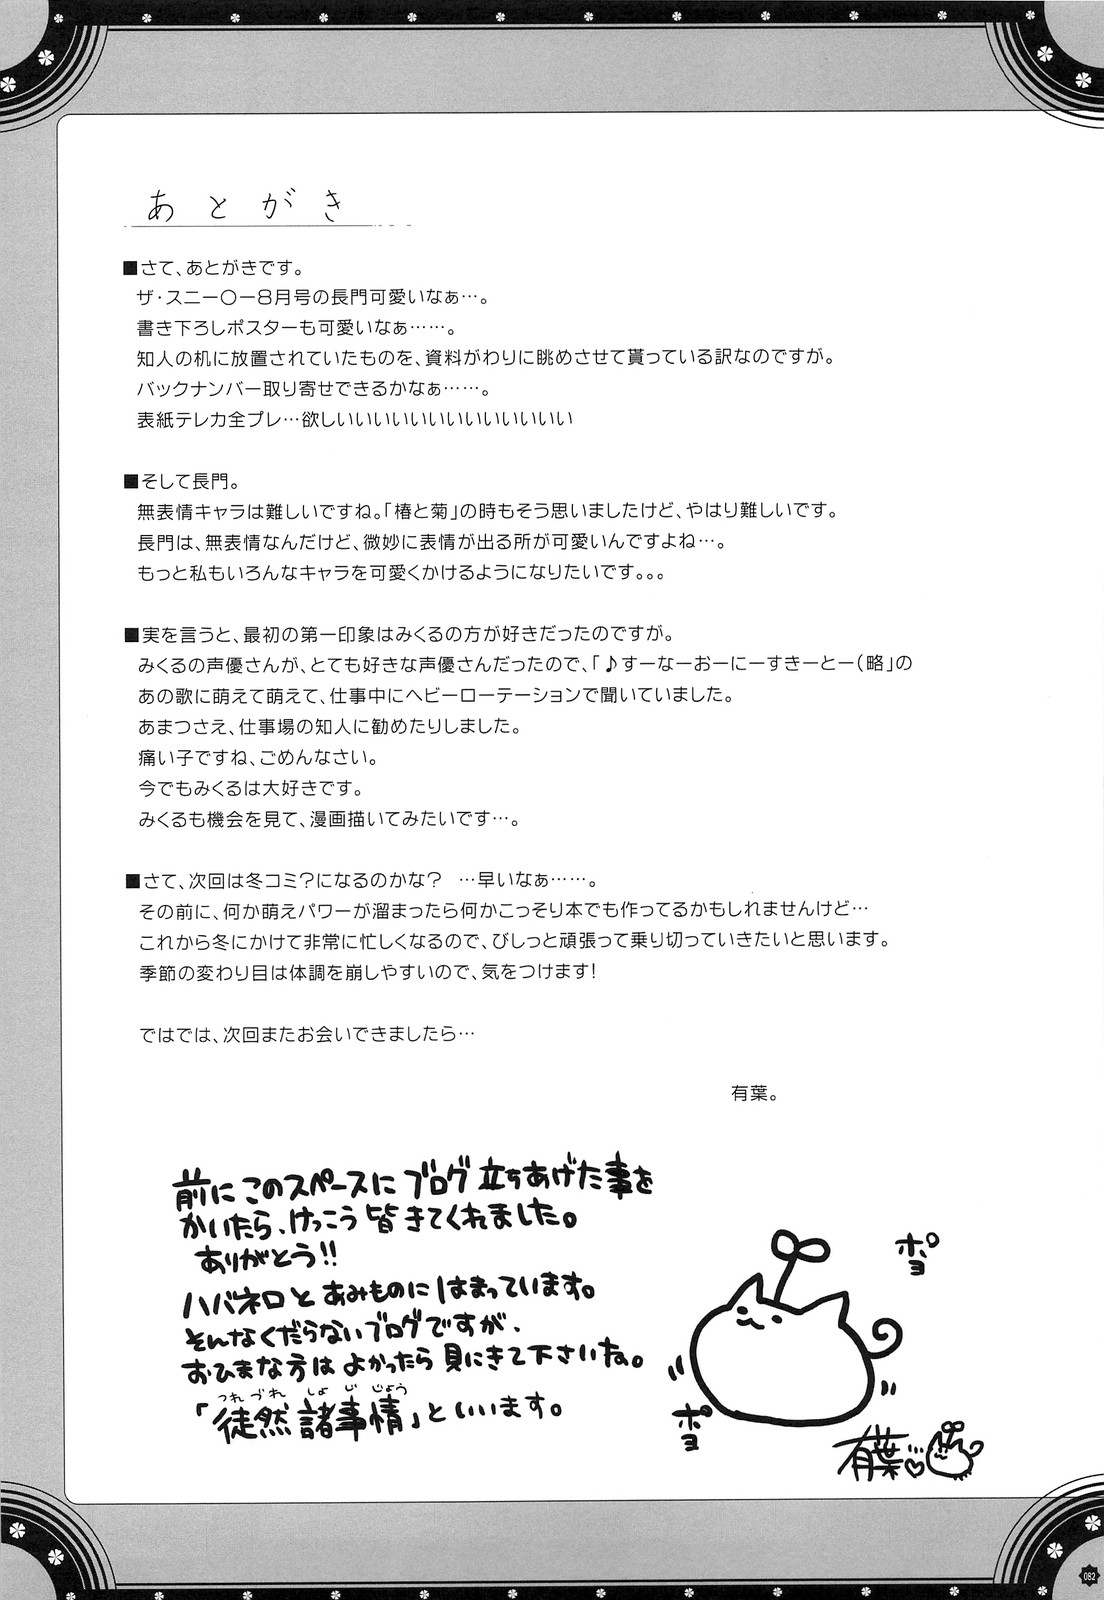 あとがき
■さて、あとがきです。
ザ・スニー〇ー8月号の長門可愛いなぁ…。
書き下ろしポスターも可愛いなぁ……。
知人の机に放置されていたものを、資料がわりに眺めさせて貰っている訳なのですが。
バックナンバー取り寄せできるかなぁ……。
表紙テレカ全プレ…欲しいいいいいいいいいいいいい
■そして長門。
無表情キャラは難しいですね。「椿と菊」の時もそう思いましたけど、やはり難しいです。
長門は、無表情なんだけど、微妙に表情が出る所が可愛いんですよね…。
もっと私もいろんなキャラを可愛くかけるようになりたいです。。。
■実を言うと、最初の第一印象はみくるの方が好きだったのですが。
みくるの声優さんが、とても好きな声優さんだったので、「♪すーなーおーにーすきーとー(略」の
あの歌に萌えて萌えて、仕事中にヘビーローテーションで聞いていました。
あまつさえ、仕事場の知人に勧めたりしました。
痛い子ですね、ごめんなさい。
今でもみくるは大好きです。
みくるも機会を見て、漫画描いてみたいです…。
■さて、次回は冬コミ?になるのかな? …早いなぁ……。
その前に、何か萌えパワーが溜まったら何かこっそり本でも作ってるかもしれませんけど…
これから冬にかけて非常に忙しくなるので、びしっと頑張って乗り切っていきたいと思います。
季節の変わり目は体調を崩しやすいので、気をつけます!
ではでは、次回またお会いできましたら…
有葉。
前にこのスペースにブログ立ちあげた事を
かいたら、けっこう皆きてくれました。
ありがとう!!
ハバネロとあみものにはまっています。
そんなくだらないブログですが、
おひまな方はよかったら見にきて下さいね。
つれづれしょじじょう
「徒然諸事情」といいます。
ポヨ
ポヨ
有葉
082